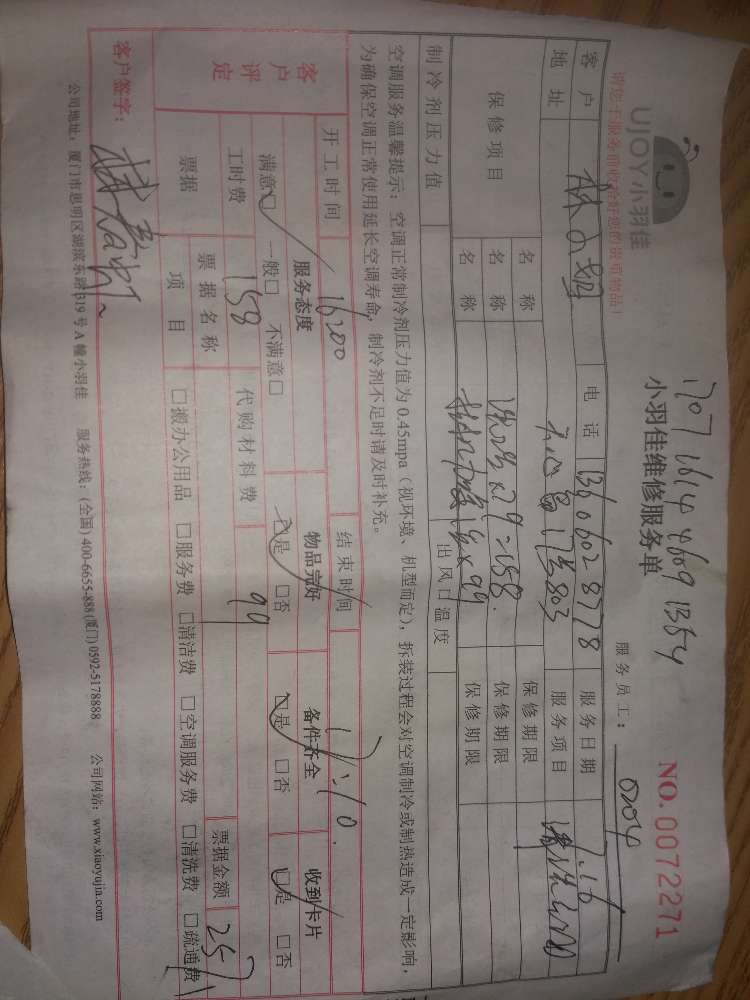 UJOY小羽佳
请您于服务前收拾好您的贵重物品!
1707 1614 4609 1354
小羽佳维修服务单
服务员工: 0204
NO. 0072271
客户 电话 13606028778 服务日期 7.16
地址 803 服务项目 清洗
保修项目 名称 保修期限
名称 ×79=158. 保修期限
名称 ×99 保修期限
制冷剂压力值 出风口温度
空调服务温馨提示: 空调正常制冷剂压力值为0.45mpa(视环境、机型而定), 拆装过程会对空调制冷或制热造成一定影响,
为确保空调正常使用延长空调寿命, 制冷剂不足时请及时补充。
开工时间 16:00 结束时间 17:10.
客户评定 服务态度 物品完好 备件齐全 收到卡片
满意☑ 一般□ 不满意□ ☑是 □否 ☑是 □否 ☑是 □否
工时费 158 代购材料费 99
票据 票据名称 票据金额 257
项目 □搬办公用品 □服务费 □清洁费 □空调服务费 □清洗费 □疏通费
客户签字:
公司地址: 厦门市思明区湖滨东路319号A幢小羽佳 服务热线: (全国) 400-6655-888 (厦门) 0592-5178888 公司网站: www.xiaoyujia.com